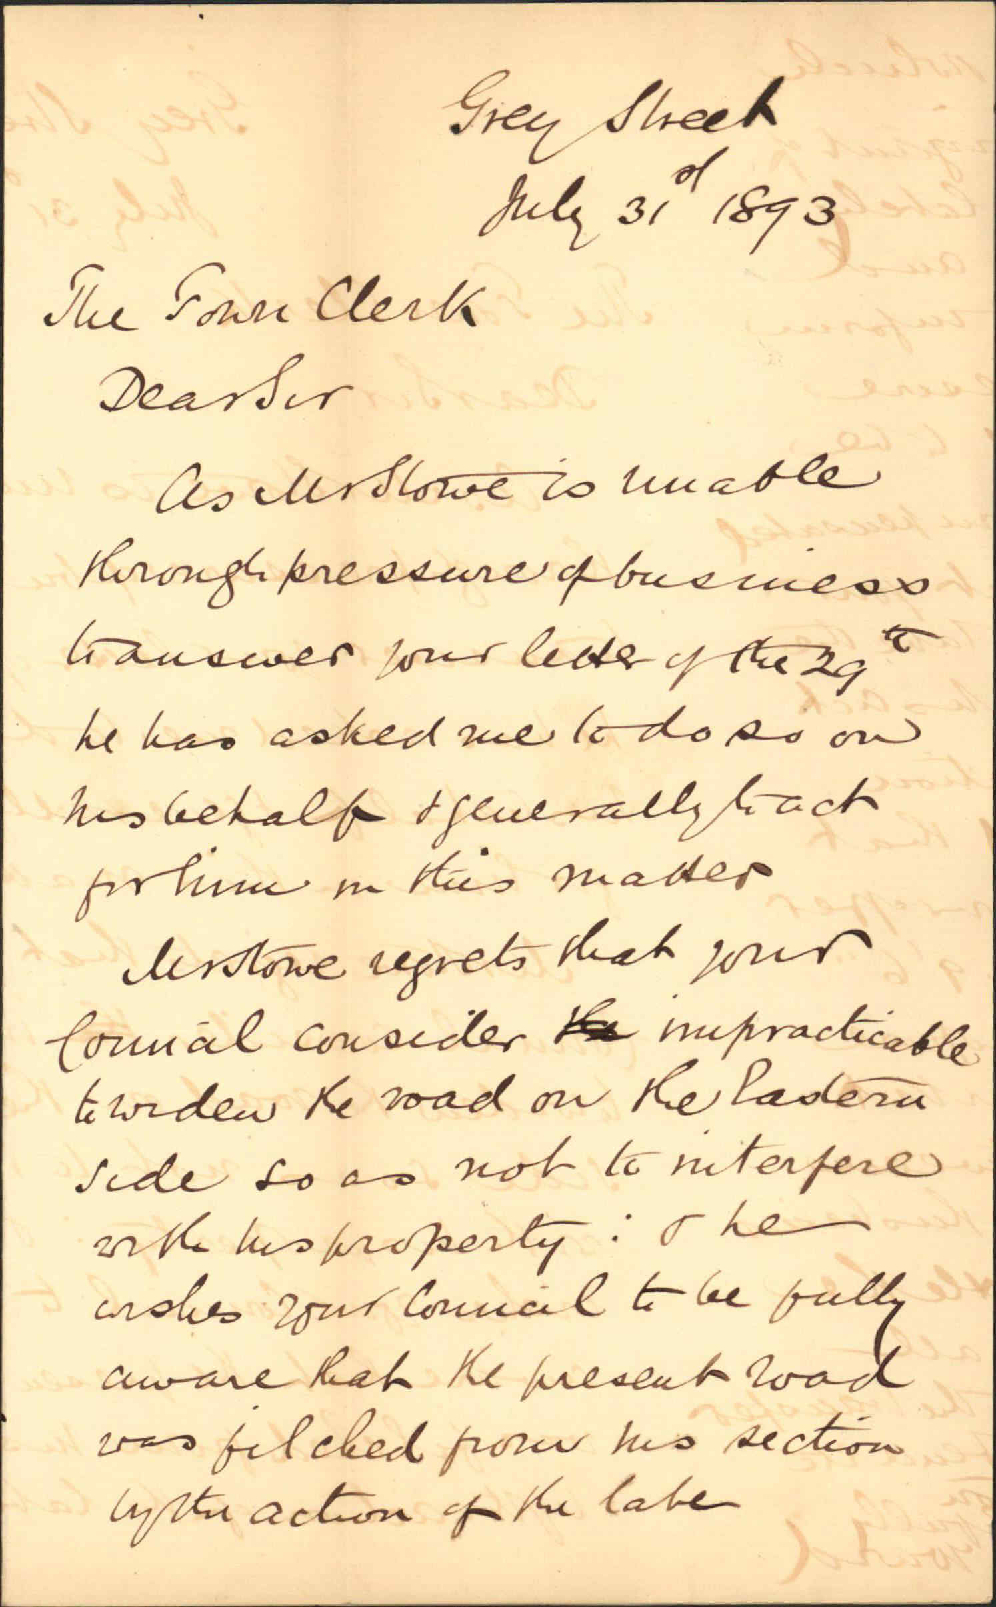 Grey Street
July 31st 1893
The Town Clerk
Dear Sir
As Mr Stowe is unable
through pressure of business
to answer your letter of the 29th
he has asked me to do so on
his behalf & generally to act
for him in this matter
Mr Stowe regrets that your
Council consider the impracticable
to widen the road on the Eastern
side so as not to interfere
with his property : & he
wishes your Council to be fully
aware that the present road
was filched from his section
by the action of the late